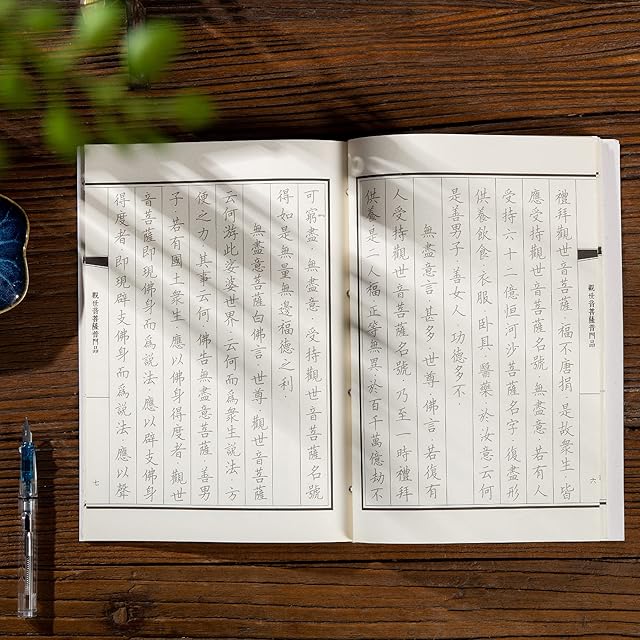 觀世音菩薩普門品
六
禮拜觀世音菩薩·福不唐捐·是故衆生·皆
應受持觀世音菩薩名號·無盡意·若有人
受持六十二億恒河沙菩薩名字·復盡形
供養飲食·衣服·卧具·醫藥·於汝意云何
是善男子·善女人·功德多不·
無盡意言·甚多·世尊·佛言·若復有
人受持觀世音菩薩名號·乃至一時禮拜
供養·是二人福·正等無異·於百千萬億劫·不
可窮盡·無盡意·受持觀世音菩薩名號
得如是無量無邊福德之利·
無盡意菩薩白佛言·世尊·觀世音菩薩
云何游此娑婆世界·云何而爲衆生說法·方
便之力·其事云何·佛告無盡意菩薩·善男
子·若有國土衆生·應以佛身得度者·觀世
音菩薩即現佛身而爲說法·應以辟支佛身
得度者·即現辟支佛身而爲說法·應以聲
觀世音菩薩普門品
七